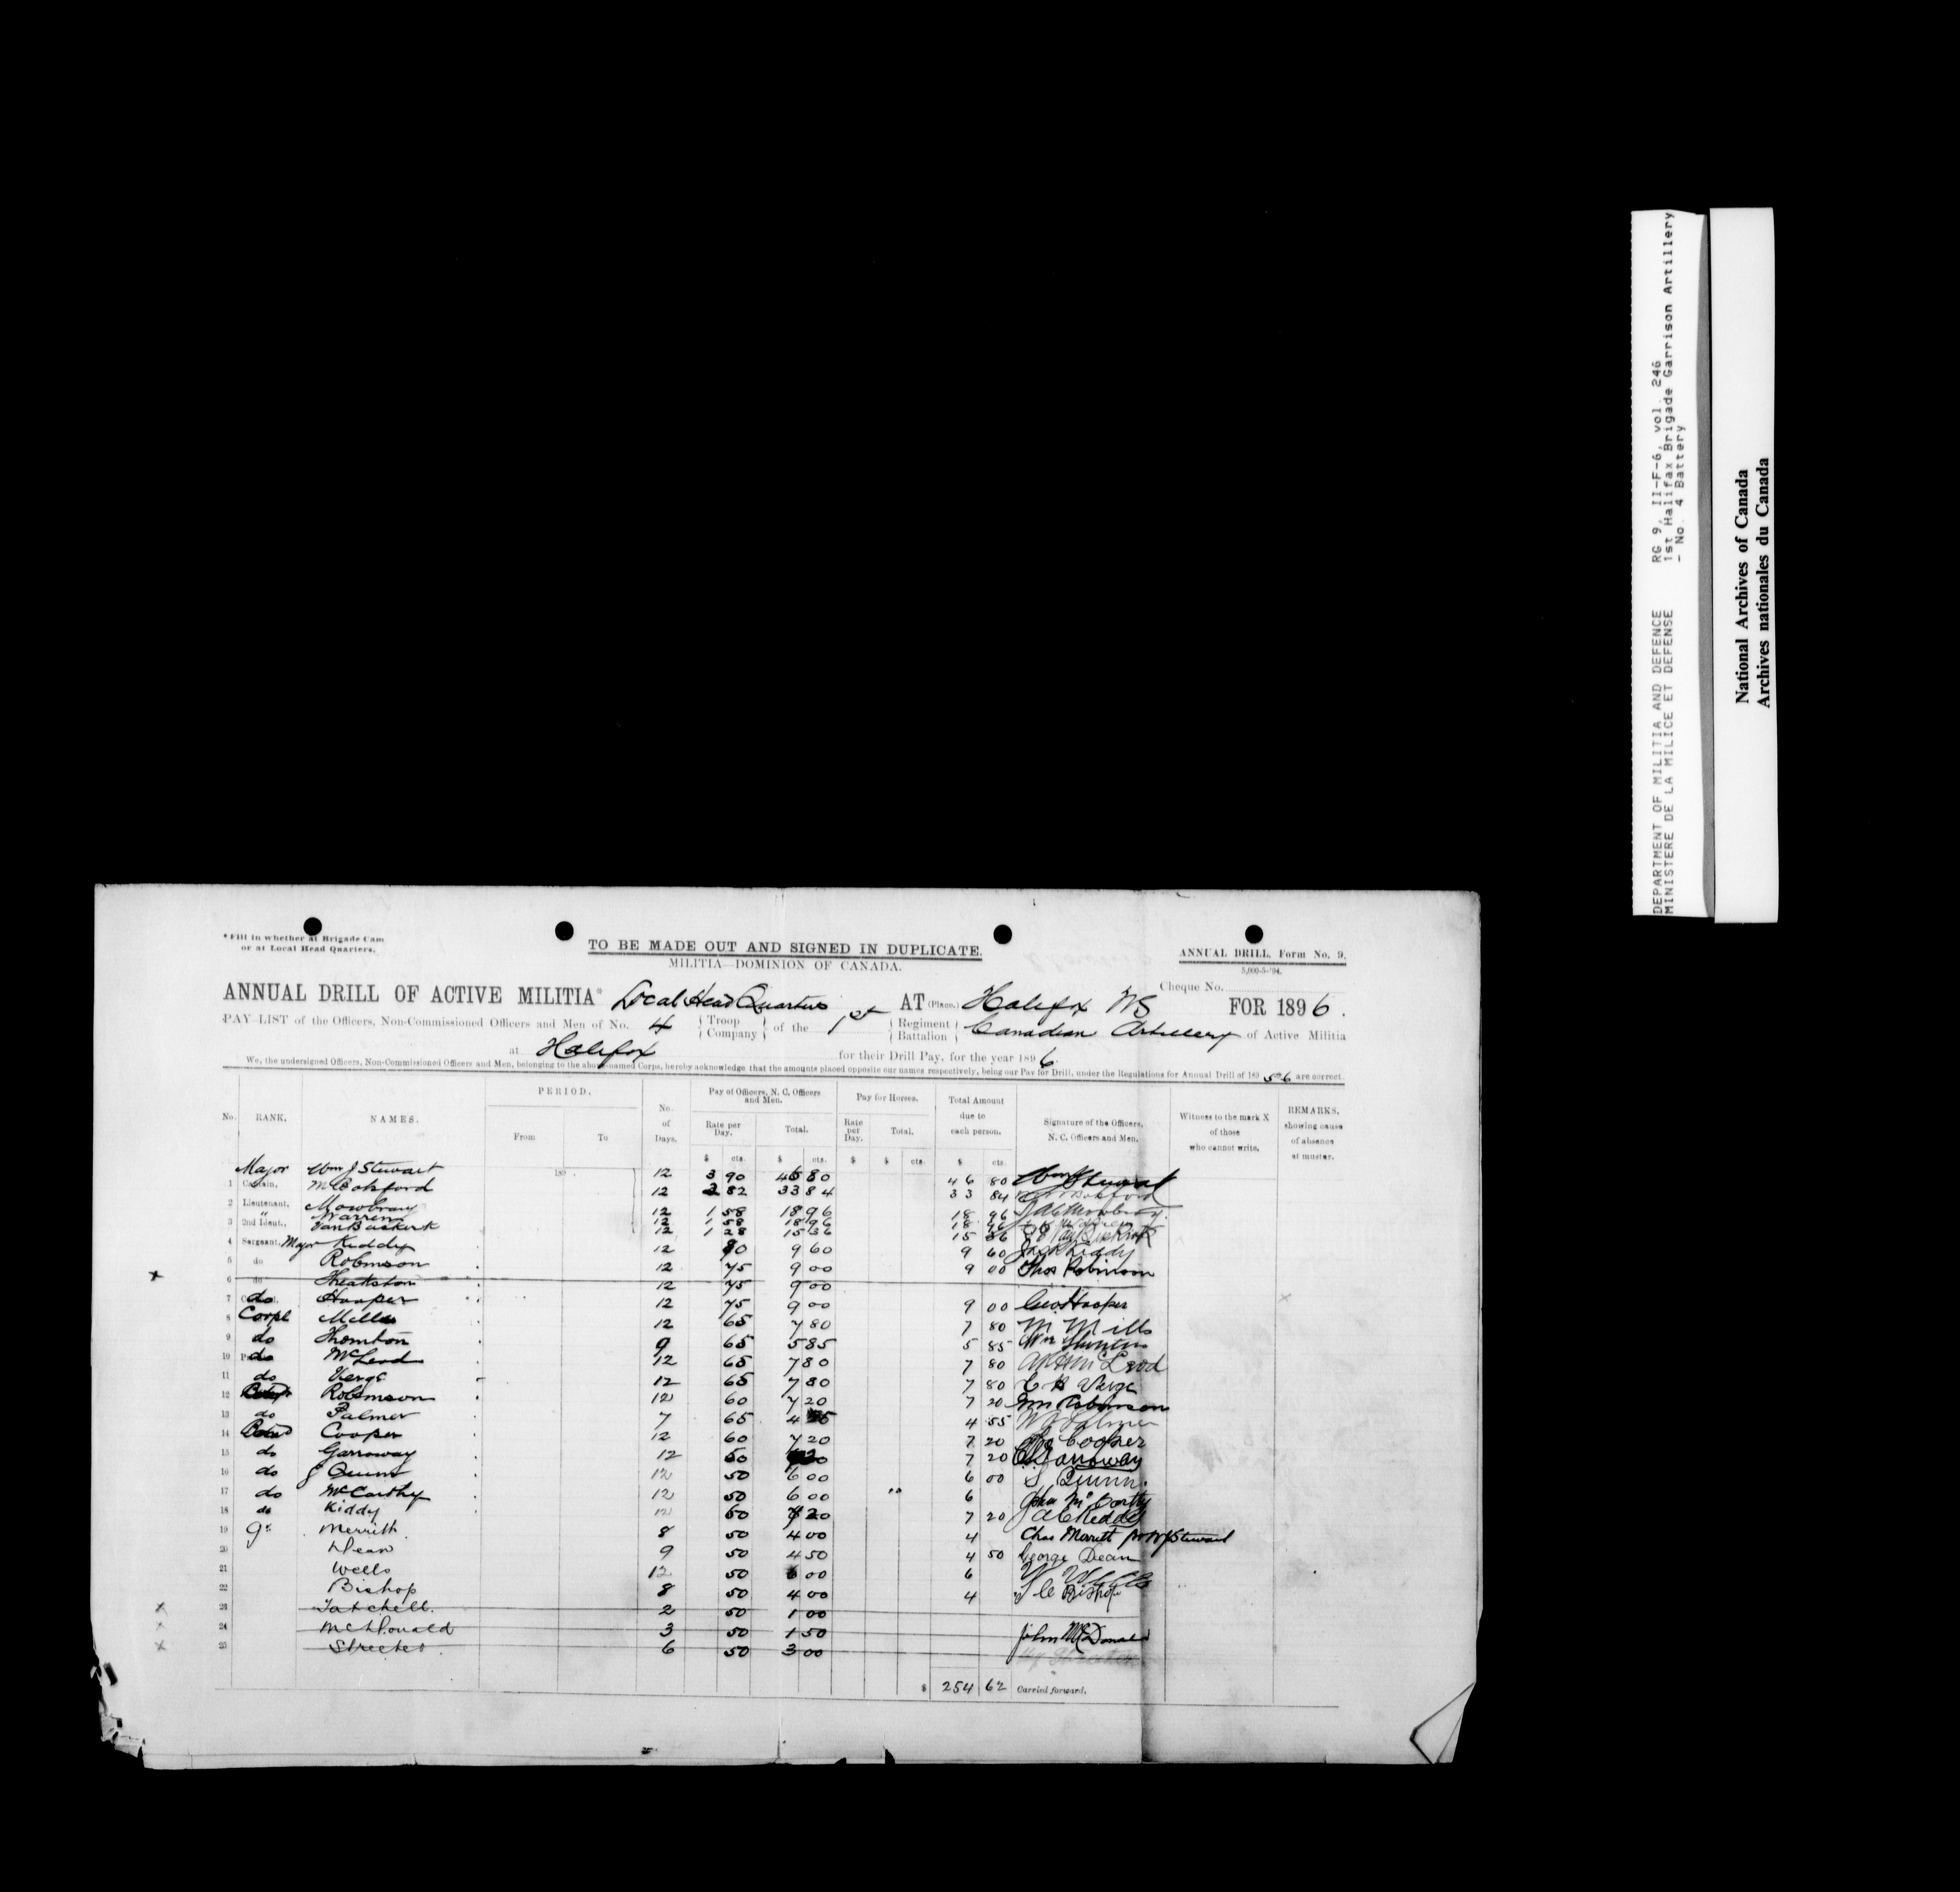 * Fill in whether at Brigade Cam
or at Local Head Quarters.
TO BE MADE OUT AND SIGNED IN DUPLICATE.
MILITIA—DOMINION OF CANADA.
ANNUAL DRILL, Form No. 9.
5,000-5-'94.
Cheque No.
ANNUAL DRILL OF ACTIVE MILITIA* Local Head Quarters AT (Place.) Halifax NS FOR 1896.
PAY LIST of the Officers, Non-Commissioned Officers and Men of No. 4 { Troop Company } of the 1st { Regiment Battalion } Canadian Artillery of Active Militia
at Halifax for their Drill Pay, for the year 1896
We, the undersigned Officers, Non-Commissioned Officers and Men, belonging to the above-named Corps, hereby acknowledge that the amounts placed opposite our names respectively, being our Pay for Drill, under the Regulations for Annual Drill of 189 5-6 are correct.
No. RANK. NAMES. PERIOD. From To No. of Days. Pay of Officers, N. C. Officers and Men. Rate per Day. Total. Pay for Horses. Rate per Day. Total. Total Amount due to each person. Signature of the Officers, N. C. Officers and Men. Witness to the mark X of those who cannot write. REMARKS, showing cause of absence at muster.
$ cts. $ cts. $ $ cts. $ cts.
Major Wm J Stewart 189 12 3 90 46 80 46 80
1 Captain, 12 2 82 33 84 33 84
2 Lieutenant, Mowbray 12 1 58 18 96 18 96
" Warren 12 1 58 18 96 18 96
3 2nd Lieut., VanBuskirk 12 1 28 15 36 15 36
4 Sergeant, Major Kiddy 12 80 9 60 9 60 Kiddy
5 do Robinson 12 75 9 00 9 00 Thos Robinson
6 do Theakston 12 75 9 00
7 do Hooper 12 75 9 00 9 00 Geo Hooper
8 Corpl Mills 12 65 7 80 7 80 M Mills
9 do Thornton 9 65 5 85 5 85 Wm
10 do McLeod 12 65 7 80 7 80 McLeod
11 do Verge 12 65 7 80 7 80 Verge
12 Robinson 12 60 7 20 7 20 Wm Robinson
13 do Palmer 7 65 4 55 4 55 Palmer
14 Cooper 12 60 7 20 7 20 Cooper
15 do Garroway 12 60 7 20 Garroway
16 do J Quinn 12 50 6 00 6 00 J Quinn
17 do McCarthy 12 50 6 00 6 John McCarthy
18 do Kiddy 12 60 7 20 7 20 Kiddy
19 Gr Merritt 8 50 4 00 4 Chas Merritt Stewart
20 Dean 9 50 4 50 4 50 George Dean
21 Wells 12 50 6 00 6 W Wells
22 Bishop 8 50 4 00 4 Bishop
23 Tatchell. 2 50 1 00
24 McDonald 3 50 1 50 John McDonald
25 Streeter 6 50 3 00
$ 254 62 Carried forward.
DEPARTMENT OF MILITIA AND DEFENCE RG 9, II-F-6, vol. 246
MINISTERE DE LA MILICE ET DEFENSE 1st Halifax Brigade Garrison Artillery
- No. 4 Battery
National Archives of Canada
Archives nationales du Canada